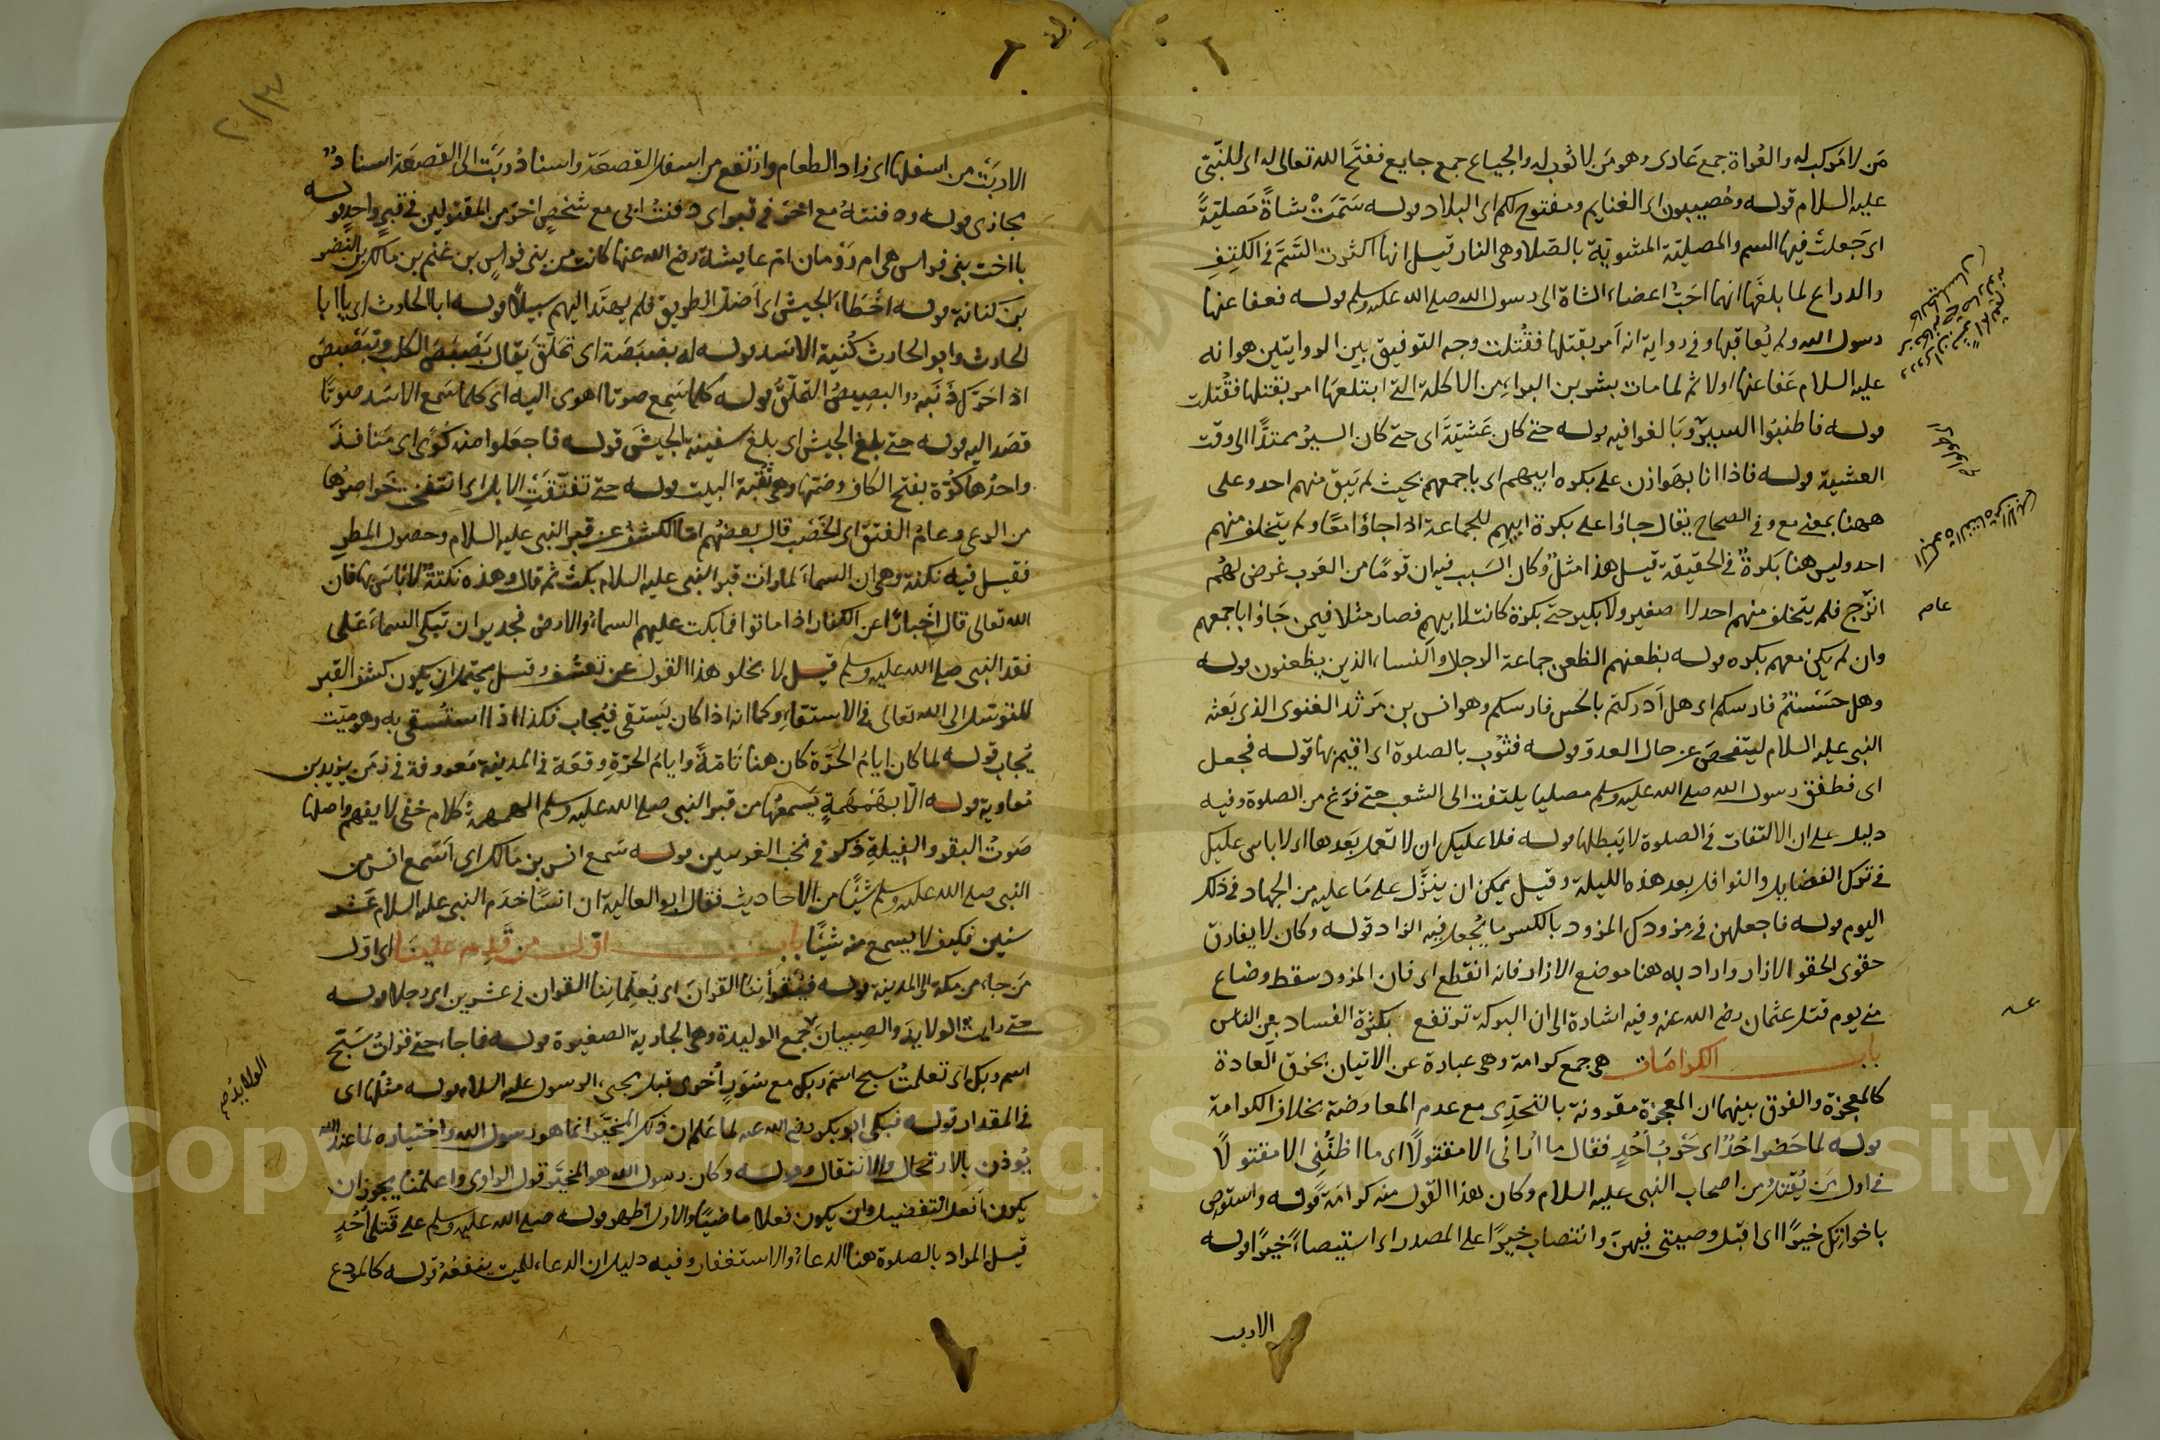 مَن لا مَركب له والعُراة جمع عَارى وهو مَن لا ثوب له والجياع جمع جايع ففتَح الله تعالى له اى للنبّى
عليه السلام قوله ومُصيبون اى الغنايم ومفتوح لكم اى البلاد قوله سَمَّتْ شاةً مَصليّةً
اى جَعلتْ فيها السم والمصليّة المشويّة بالصَلا وهى النار قيل انها اكثرت السَّمَّ فى الكتِفِ
والدراع لما بلغَها انهما احَبُّ اعضاء الشاة الى رسول الله صلى الله عليه وسلم قوله فعفا عنها
رسول الله ولم يُعاقبها وفى رواية انه اَمر بقتلها فقُتلت وجه التوفيق بين الروايتين هو انه
عليه السلام عَفا عنها اولا ثم لما مات بشر بن البراء من الاكلة التى ابتلعَها امر بقتلها فقُتلت
قوله فاطنبُوا السيرَ وبَالغوا فيه قوله حتى كان عَشيّةً اى حتى كان السيرُ ممتدًّا الى وقت
العشية قوله فاذا انا بهَوازن على بكره ابيهم اى باجمعهم بحيث لم يَبق منهم احد وعلى
ههنا بمعنى مع وفى الصحاح يقال جاؤا على بكرة ابيهِم للجماعة اذا جاؤا معًا ولم يتخلف منهم
احد وليس هنا بكرةٌ فى الحقيقة قيل هذا مثلٌ وكان السَبب فيه ان قومًا من العَرب عَرض لهُم
انزَج فلم يتخلف منهم احد لا صغير ولا كبير حتى بكرة كانت لابيهم فصار مثلا فيمن جَاؤا باجمعهم
وان لم يكن معهم بكره قوله بظعنهم الظعن جماعة الرجال والنساء الذين يظعنون قوله
وهل حَسَستمْ فارسكم اى هل اَدركتم بالحس فارسكم وهو انس بن مَرثد الغنوى الذى بَعثه
النبى عليه السلام ليتفحصَ عن حال العدو قوله فثوّب بالصلوة اى اقيم بها قوله فجعل
اى فطفق رسول الله صلى الله عليه وسلم مصليا يلتفت الى الشعب حتى فرَغ من الصلوة وفيه
دليل على ان الالتفات فى الصلوة لا يَبطلها قوله فلا عليك ان لا تعمل بَعدها اى لا باس عليك
فى ترك الفضايل والنوافل بعد هذه الليلة وقيل يمكن ان ينزَّل على مَا عليه من الجهاد فى ذلك
اليوم قوله فاجعلهن فى مزودك المزود بالكسر ما يُجعل فيه الزاد قوله وكان لا يفارق
حقوى الحقو الازار واراد به هنا موضع الازار فانه انقطع اى فان المزود سقط وضاع
منى يوم قتل عثمان رضى الله عنه وفيه اشارة الى ان البركة ترتفع بكثرة الفساد بين الناس
باب الكرامَات هى جمع كرامة وهى عبارة عن الاتيان بخرق العادة
كالمعجزة والفرق بينهما ان المعجزة مقرونة بالتحدّى مع عدم المعارضة بخلاف الكرامة
قوله لما حَضر احُدٌ اى حَرْبُ اُحُدٍ فقال ما اُرانى الا مقتولًا اى ما اظنُّنِى الا مقتولًا
فى اول مَن يُقتلُ من اصحاب النبى عليه السلام وكان هذا القول منه كرامَة قوله واستوص
باخواتِكَ خيرًا اى اقبل وصيتى فيهنّ وانتصاب خيرًا على المصدر اى استيصاءً خيرًا قوله
الا ربت
عام
الا ربَتْ من اسفلها اى زاد الطعام وارتفع من اسفل القصعَة واسنادُ ربَتْ الى القصعَة اسنادٌ
مجازى قوله ودفنتهُ مع اخرَ فى قبر اى دفنتُ ابى مع شخصٍ اخرَ من المقتولين فى قبرٍ واحدٍ قوله
يا اخت بنى فراس هى ام رَوْمان ام عايشة رضى الله عنها كانت من بنى فراسِ بن غنم بن مالك بن النضر
بن كنانة قوله اخَطأ الجيش اى اَضلَّ الطريق فلم يهتد اليهم سبيلًا قوله ابا الحارث اى يا ابا
الحارث وابو الحارث كُنية الاسَد قوله له بصبَصَة اى تملّق يقال بَصْبَصَ الكلب وتبَصْبصَ
اذا حَرّك ذَنَبه والبصِيصُ التملّق قوله كلما سَمِع صوتا اهوى اليه اى كلما سَمع الاسَد صوتًا
قصَد اليه قوله حتى بلغ الجيش اى بلغ سفينة الجيشَ قوله فاجعَلوا منه كوًى اى مَنافذَ
واحدُها كُوّة بفتح الكاف وضمّها وهى ثُقبة البيت قوله حتى تفتّقَتِ الابل اى انتفخت خَواصرُها
من الرعى وعامُ الفتق اى الخَصْب قال بعضُهم امّا الكشفُ عن قبر النبى عليه السلام وحصول المطر
فقيل فيه نكتة وهى ان السماءَ لما رات قبر النبى عليه السلام بكتْ ثم قال وهذه نكتةٌ لا بَاسَ بها فان
الله تعالى قال اخبارًا عن الكفار اذا ماتوا فما بكت عليهم السماءُ والارض فجدير ان تبكى السماءُ عَلى
فقد النبى صلى الله عليه وسلم قيل لا يخلو هذا القول عن تعسُّف وقيل يحتمل ان يكون كشف القبر
للتوسّل الى الله تعالى فى الاستقاء وكما انه اذا كان يستقى فيُجاب فكذا اذا استُسقى به وهو ميّت
يُجاب قوله لما كان ايامُ الحَرّة كان هنا تامّةً وايامُ الحَرّةِ وقعَة فى المدينة مَعروفة فى زمَن يزيد بن
معاوية قوله الّا بهَمْهَمةٍ يَسمعُها من قبر النبى صلى الله عليه وسلم الهمهمة كلام خفى لا يفهم واصلها
صَوتُ البقر والفيلةِ ذكره فى مجمع الغرسين قوله سَمع انس بن مَالك اى اَسَمع انس من
النبى صلى الله عليه وسلم شَيْئًا من الاحاديث فقال ابو العالية ان انسًا خدَم النبى عليه السلام عَشر
سنين فكيف لا يسمع منه شيئًا باب اول من قَدم علينَا اى اول
مَن جاء من مكة الى المدينة قوله فيُقرأننا القرانَ اى يُعلمَاننا القران فى عشرين اى رجلا قوله
حتى رايت الولايدَ والصبيانَ جمع الوليدة وهى الجارية الصغيرة قوله فما جاء حتى قراتُ سَبّح
اسم ربك اى تعلمتُ سبح اسم ربك مع سُوَرٍ اُخرى قبل مجىء الرسول عليه السلام قوله مثلها اى
فى المقدار قوله فبكى ابو بكر رضى الله عنه لما عَلم ان ذلك المخيَّر انما هو رسول الله واختياره لما عند الله
يُوذن بالارتحال والانتقال قوله وكان رسول الله هو المخيَّر قول الراوى واعلمُنا يجوز ان
يكون اَفعل التفضيل وان يكون فعلا ماضيًا والاول اظهر قوله صلى الله عليه وسلم على قتلى اُحُدٍ
قيل المراد بالصلوة هنا الدعاءُ والاستغفار وفيه دليل ان الدعاء للميت ينفعُهُ قوله كالمودع
الولايدُ صح